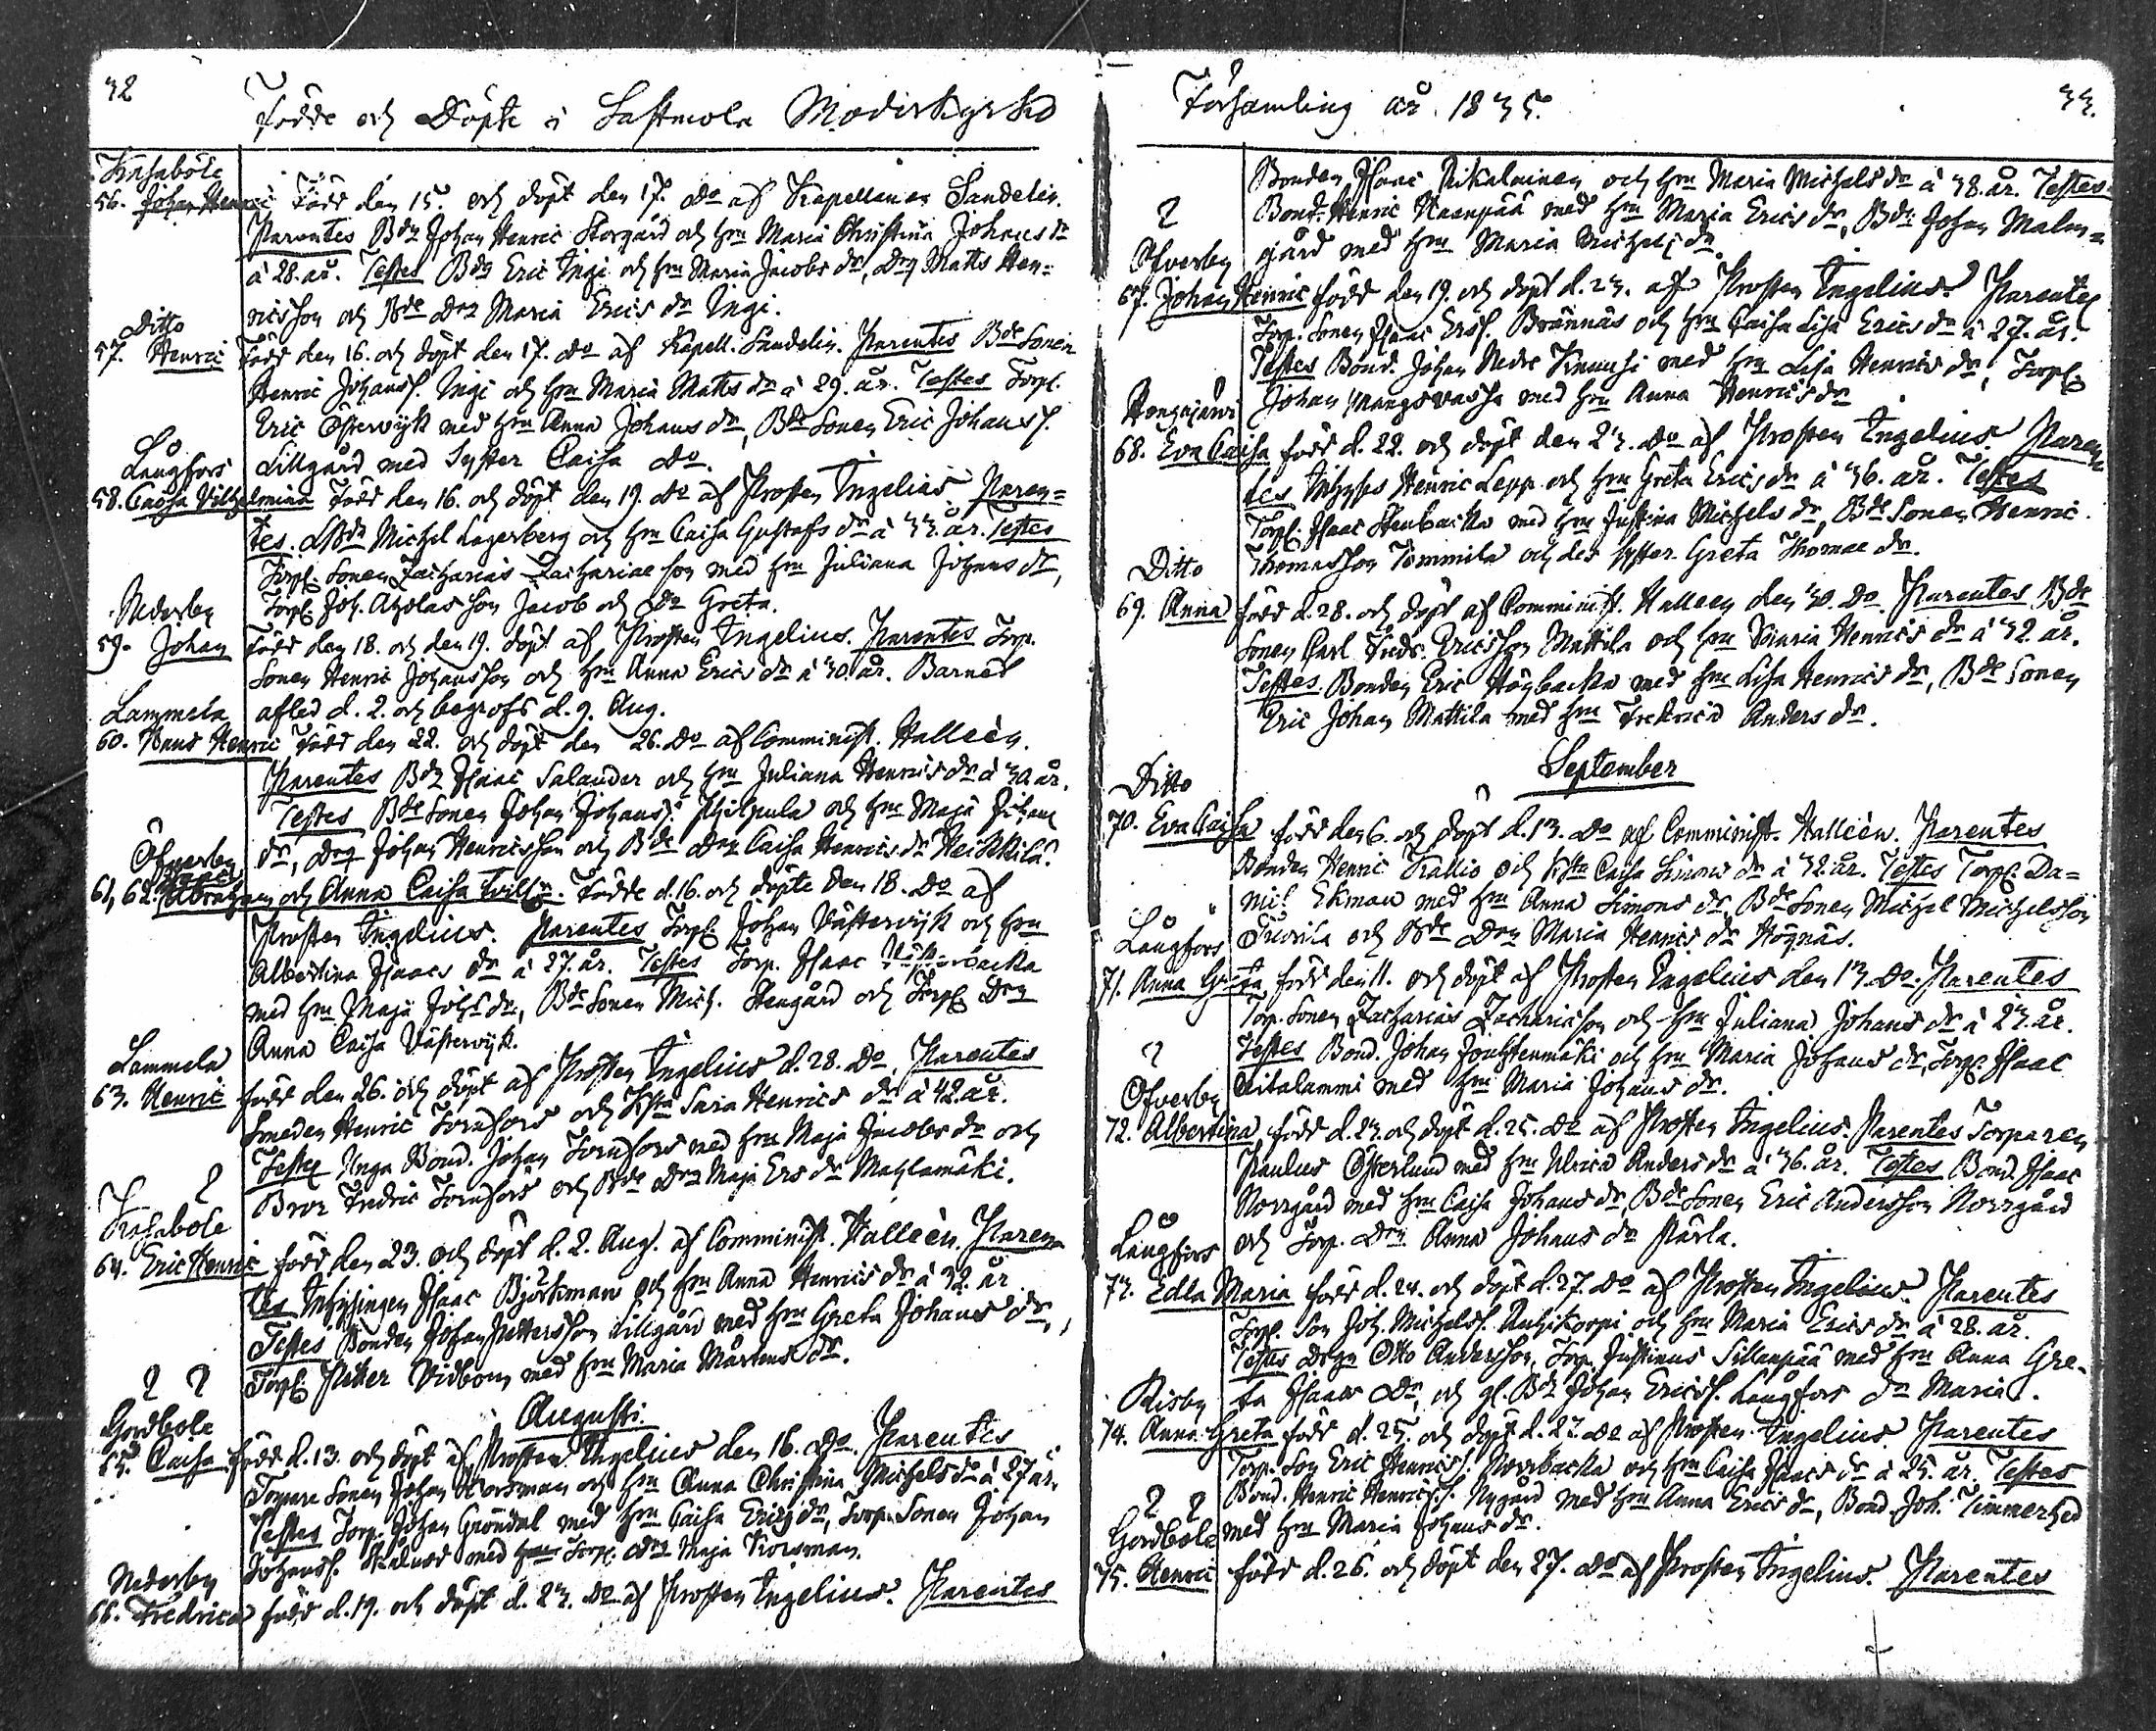 32
Födde och Döpte i Lastmola Moderkyrko
Krisaböle
56. Johan Henric Född den 15. och döpt den 17. do af Kapellanen Sandelin.
Parentes Bdn Johan Henric Storgård och hm Maria Christina Johans dr
à 28. år. Testes Bdn Eric Ingi och hm Maria Jacobs dr, Drg Matts Hen=
ricsson och Bde Drn Maria Erics dr Ingi.
Ditto
57. Henric Född den 16. och döpt den 17. do af Kapell. Sandelin. Parentes Bde Sonen
Henric Johanss. Ingi och hm Maria Matts dr à 29. år. Testes Torp.
Eric Österwijk med hm Anna Johans dr, Bde Sonen Eric Johanss.
Lillgård med Syster Caisa do.
Långfors
58. Caisa Vilhelmina Född den 16. och döpt den 19. do af Prosten Ingelius. Paren=
tes. Michel Lagerberg och hm Caisa Gustafs dr à 33. år. Testes
Torp. Sonen Zacharias Zachariae son med hm Juliana Johans dr,
Torp. Joh. son Jacob och Greta.
Nederby
59. Johan Född den 18. och den 19. döpt af Prosten Ingelius. Parentes Torp.
Sonen Henric Johansson och hm Anna Erics dr à 30. år. Barnet
afled d. 2. och begrofs d. 9. Aug.
Lammela
60. Henric Född den 22. och döpt den 26. do af Comminist. Halleèn.
Parentes Bdn Isaac Salander och hm Juliana Henrics dr à 30. år.
Testes Bde Sonen Johan Johanss. och hm Maja Johans
dr, Drg Johan Henricsson och Bde Drn Caisa Henrics dr Heikkilä.
Öfverby
Isaac
61, 62. Abraham och Anna Caisa Födde d. 16. och döpte den 18. do af
Prosten Ingelius. Parentes Torp. Johan Västerwijk och hm
Albertina Isaacs dr à 27. år. Testes Torp. Isaac
med hm Maja Johs dr, Bde Sonen Mich. Stengård och Torp. Drn
Anna Caisa Västerwijk.
Lammela
63. Henric född den 26. och döpt af Prosten Ingelius d. 28. do. Parentes
Smeden Henric Forssfors och Hstr Sara Henrics dr à 42. år.
Testes Unga Bond. Johan med hm Maja Jacobs dr och
Bror Fredric och Bde Drn Maja Ers dr Maylamäki.
Krisabole
64. Eric Henric född den 23. och döpt d. 2. Aug. af Comminist. Halleèn. Paren
tes Inhysingen Isaac Björkman och hm Anna Henrics dr à 32. år
Testes Bonden Johan Pettersson Lillgård med hm Greta Johans dr,
Torp. Petter Vidbom med hm Maria Mårtens dr.
Augusti.
Gordbole
65. Caisa född d. 13. och döpt af Prosten Ingelius den 16. do. Parentes
Torpare Sonen Johan Korsman och hm Anna Christina Michels dr à 27 år.
Testes Torp. Johan Gröndal med hm Caisa Erics dr, Torp. Sonen Johan
Johanss. med Torp. Drn Maja Korsman.
Nederby
66. Fredrica född d. 19. och döpt d. 23. do af Prosten Ingelius. Parentes
Församling år. 1835.
33.
Bonden Isaac Rikalainen och hm Maria Michels dr à 38. år. Testes
Bond. Henric Haanpää med hm Maria Erics dr, Bdn Johan Malm=
gård med hm Maria Michels dr.
Öfverby
67. Johan Henric född den 19. och döpt d. 23. af Prosten Ingelius. Parentes
Torp. Sonen Isaac Erss. Brännäs och hm Caisa Lisa Erics dr à 27. år.
Testes Bond. Johan Nedre Knuusi med hm Lisa Henrics dr, Torp.
Johan med hm Anna Henrics dr
Hongajärvi
68. Eva Caisa född d. 22. och döpt den 23. do af Prosten Ingelius. Paren
tes Inhyses Henric Lepp. och hm Greta Erics dr à 36. år. Testes
Torp. Isaac Stenbacka med hm Justina Michels dr, Bde Sonen Henric
Thomasson Tommila och des Syster Greta Thomae dr.
Ditto
69. Anna född d. 28. och döpt af Comminist. Halleen den 30. do. Parentes Bde
Sonen Carl Fredr. Ericsson Mattila och hm Maria Henrics dr à 32. år.
Testes Bonden Eric Högbacka med hm Lisa Henrics dr, Bde Sonen
Eric Johan Mattila med hm Fredrica Anders dr.
September
Ditto
70. Eva Caisa född den 6. och döpt d. 13. do af Comminist. Halleèn. Parentes
Bonden Henric Kallio och Hstr Caisa Simons dr à 32. år. Testes Torp. Da=
niel Ekman med hm Anna Simons dr, Bde Sonen Michel Michelsson
och Bde Drn Maria Henrics dr Högnäs.
Långfors
71. Anna Greta född den 11. och döpt af Prosten Ingelius den 13. do. Parentes
Torp. Sonen Zacharias Zachariason och hm Juliana Johans dr à 23. år.
Testes Bond. Johan och hm Maria Johans dr, Torp. Isaac
med hm Maria Johans dr.
Öfverby
72. Albertina född d. 23. och döpt d. 25. do af Prosten Ingelius. Parentes Torparen
Paulus Österlund med hm Ulrica Anders dr à 36. år. Testes Bond. Isaac
Norrgård med hm Caisa Johans dr, Bde Sonen Eric Andersson Norrgård
och Torp. Drn Anna Johans dr Pärla.
Långfors
73. Edla Maria född d. 24. och döpt d. 27. do af Prosten Ingelius. Parentes
Torp. Son Joh. Michelss. och hm Maria Erics dr à 28. år.
Testes Drgn Otto Andersson, Torp. Justinus Sillanpää med hm Anna Gre-
ta Isaacs dr, och gl. Bdn Johan Ericss. Långfors dr Maria.
Risby
74. Anna Greta född d. 25. och döpt d. 27. do af Prosten Ingelius. Parentes
Torp. Son Eric Henricss. Norrbacka och hm Caisa Isaacs dr à 25. år. Testes
Bond. Henric Henricss. Nygård med hm Anna Erics dr, Bond. Joh. Timmerhed
med hm Maria Johans dr.
Gordbole
75. Henric född d. 26. och döpt den 27. do af Prosten Ingelius. Parentes